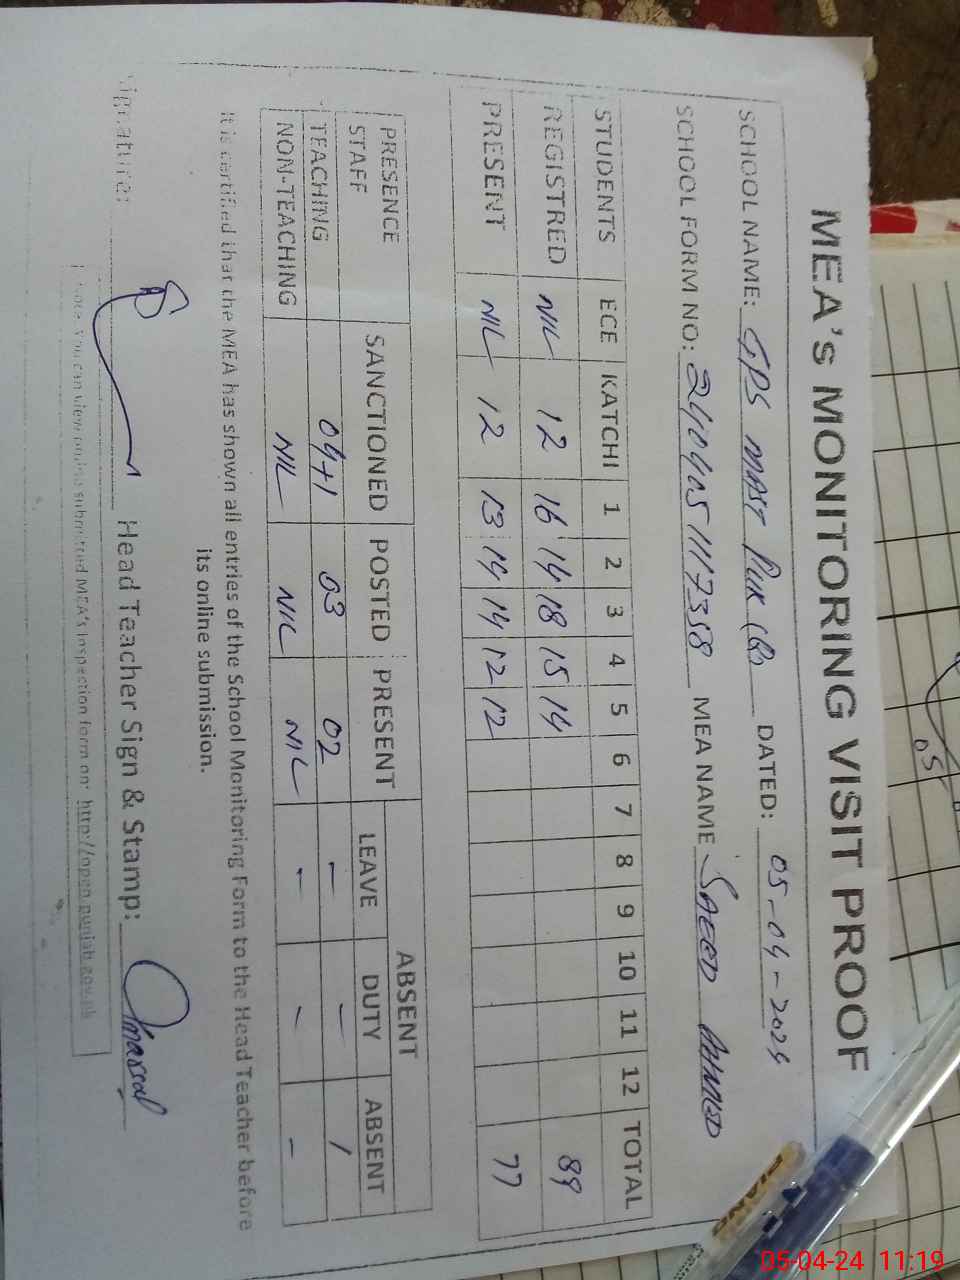 MEA's MONITORING VISIT PROOF
SCHOOL NAME: GPS MAST DATED: 05-04-2024
SCHOOL FORM NO: 24040511117358 MEA NAME SAEED AHMED
STUDENTS ECE KATCHI 1 2 3 4 5 6 7 8 9 10 11 12 TOTAL
REGISTRED NIL 12 16 14 18 15 14 89
PRESENT NIL 12 13 14 14 12 12 77
PRESENCE SANCTIONED POSTED PRESENT ABSENT
STAFF LEAVE DUTY ABSENT
TEACHING 04+1 03 02 – – 1
NON-TEACHING NIL NIL NIL – – –
It is certified that the MEA has shown all entries of the School Monitoring Form to the Head Teacher before
its online submission.
Signature: Head Teacher Sign & Stamp:
Note: You can view online submitted MEA's inspection form on: http://open.punjab.gov.pk
05
PIANO
05-04-24 11:19